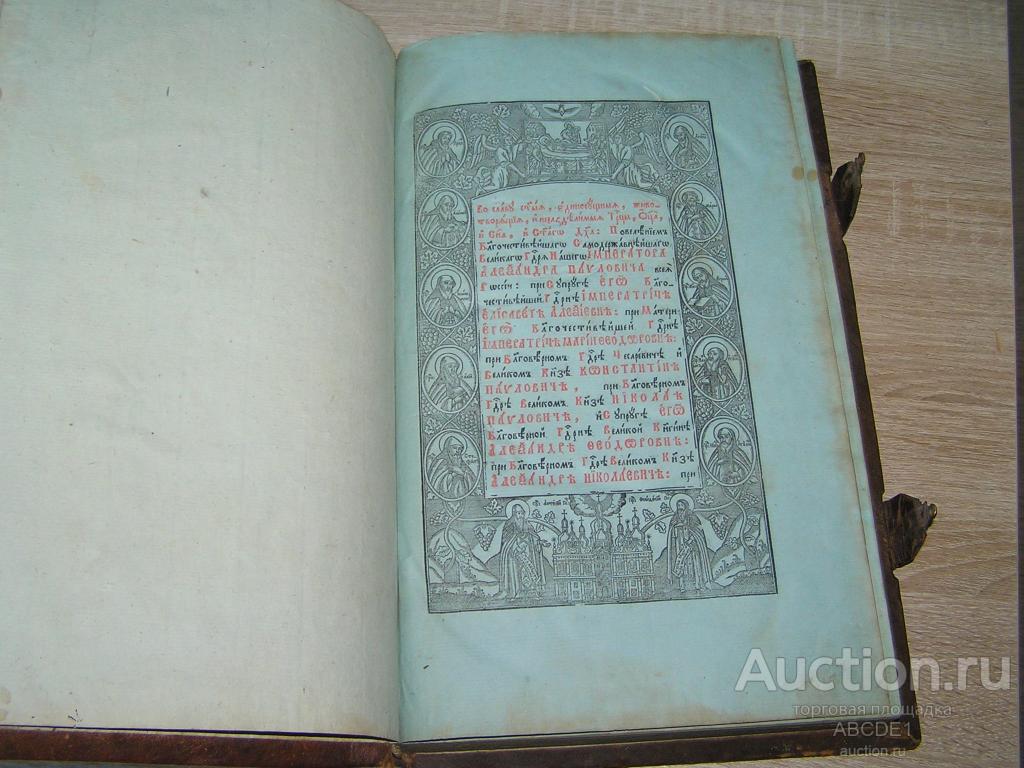 Во славу ст҃ыя, є҆диносꙋщныя, живо-
творѧщїѧ, и҆ нераздѣлимыѧ Трⷪ҇цы, Ѻ҆ц҃а,
и҆ Сн҃а, и҆ Ст҃агѡ Дх҃а: Повелѣнїемъ
Бл҃гочестивѣйшагѡ Самодержавнѣйшагѡ
Великагѡ Гдⷭ҇рѧ Нашегѡ ІМПЕРАТОРА
АЛЕѮАНДРА ПАѴЛОВИЧА всеѧ
Рѡссїи: при Сꙋпрꙋгѣ ЄГѠ̀ Бл҃го-
честивѣйшей Гдⷭ҇рнѣ ІМПЕРАТРИЦѢ
ЕЛІСАВЕТѢ АЛЕѮІЕВНѢ: при Матери
ЄГѠ̀ Бл҃гочестивѣйшей Гдⷭ҇рнѣ
ІМПЕРАТРИЦѢ МАРІИ ѲЕОДѠРОВНѢ:
при Бл҃говѣрномъ Гдⷭ҇рѣ Цесаревичѣ и҆
Великомъ Кн҃зѣ КѠНСТАНТІНѢ
ПАѴЛОВИЧѢ, при Бл҃говѣрномъ
Гдⷭ҇рѣ Великомъ Кн҃зѣ НІКОЛАѢ
ПАѴЛОВИЧѢ, и҆ Сꙋпрꙋгѣ ЄГѠ̀
Бл҃говѣрной Гдⷭ҇рнѣ Великой Кн҃гинѣ
АЛЕѮАНДРѢ ѲЕОДѠРОВНѢ:
при Бл҃говѣрномъ Гдⷭ҇рѣ Великомъ Кн҃зѣ
АЛЕѮАНДРѢ НІКОЛАЕВИЧѢ: при
Auction.ru
торговая площадка
ABCDE1
auction.ru